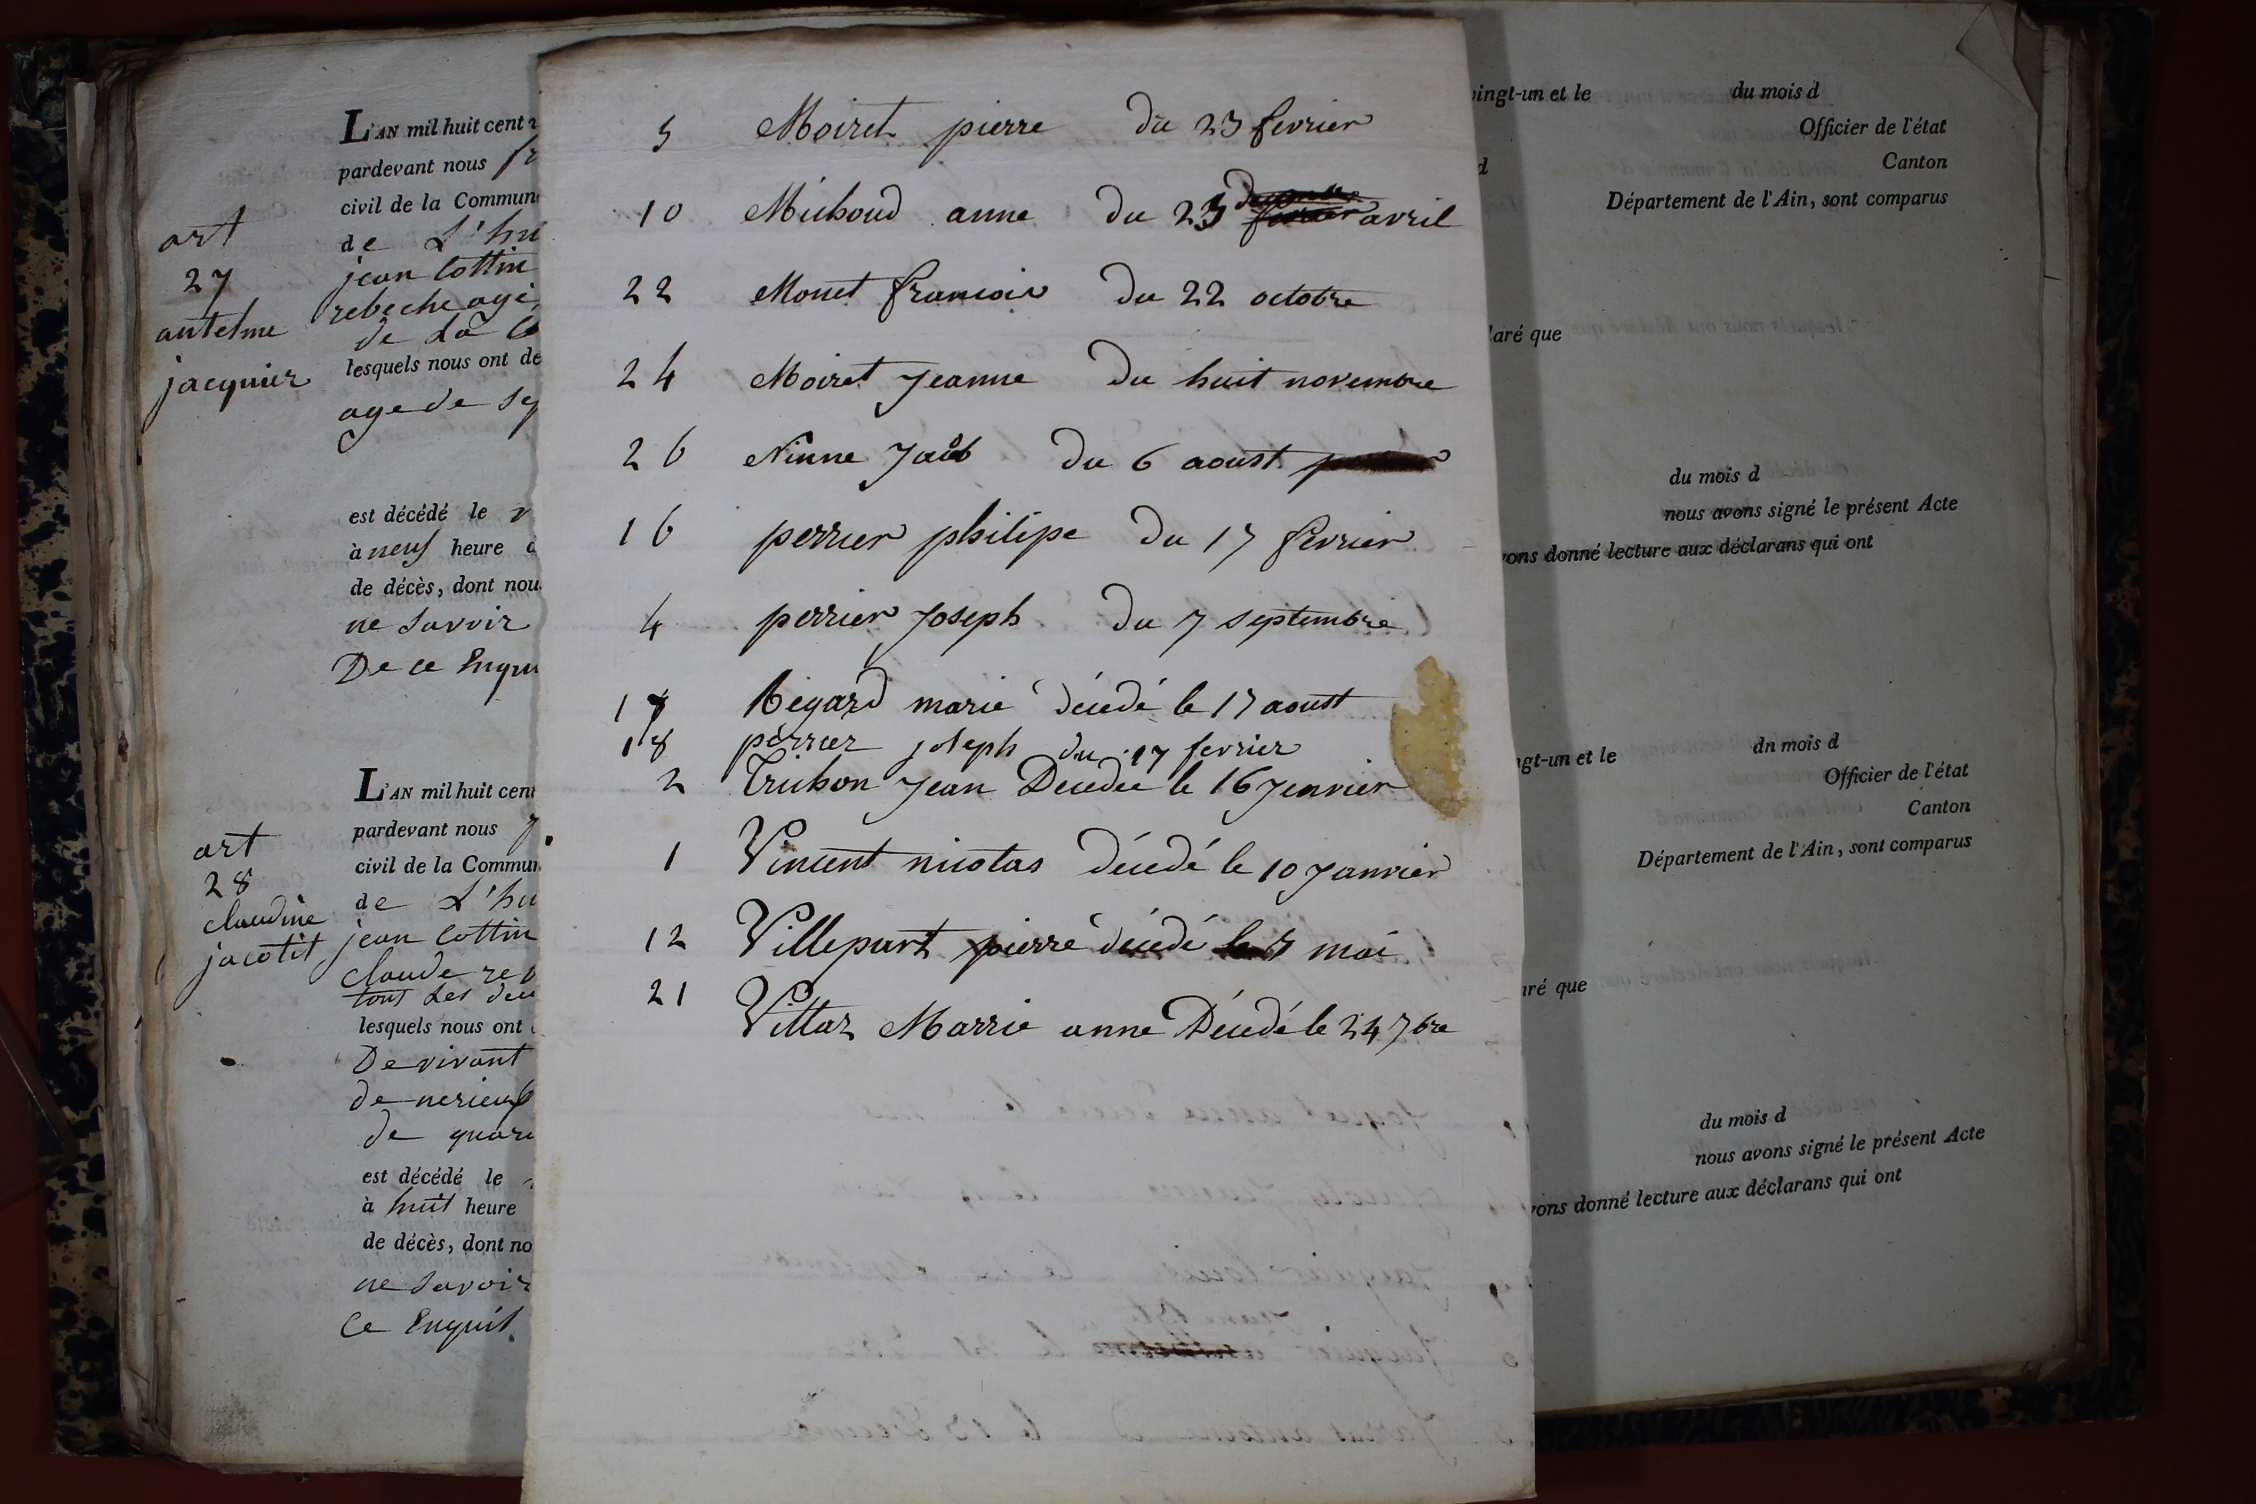 L'AN mil huit cent
pardevant nous
civil de la Commun
art
de L'hu
27
jean Cottin
antelme
rebeche agé
de La
jacquier
lesquels nous ont de
age de
est décédé le
à neuf heure
de décès, dont nou
ne Savoir
De ce Enqu
L'AN mil huit cent
pardevant nous
art
civil de la Commun
28
de L'hu
claudine
jean Cottin
jacotit
claude re
tous Les deu
lesquels nous ont
De vivant
de
de quar
est décédé le
à huit heure
de décès, dont no
ne Savoir
Ce Enquit
5 Moiret pierre du 23 fevrier
10 Michoud anne du 23 avril
22 Monet francois du 22 octobre
24 Moiret Jeanne du huit novembre
26 Ninne Jacob du 6 aoust
16 perrier philipe du 17 fevrier
4 perrier Joseph du 7 septembre
17 Régard marie décedé le 17 aoust
18 perrier joseph du 17 fevrier
2 Trichon Jean Decedée le 16 Jenvier
1 Vincent nicolas décedé le 10 Janvier
12 Villepart pierre décedé le 7 mai
21 Villar Marrie anne Décedé le 24 7bre
vingt-un et le du mois d
Officier de l'état
d Canton
Département de l'Ain, sont comparus
laré que
du mois d
nous avons signé le présent Acte
vons donné lecture aux déclarans qui ont
ngt-un et le dn mois d
Officier de l'état
Canton
Département de l'Ain, sont comparus
aré que
du mois d
nous avons signé le présent Acte
vons donné lecture aux déclarans qui ont